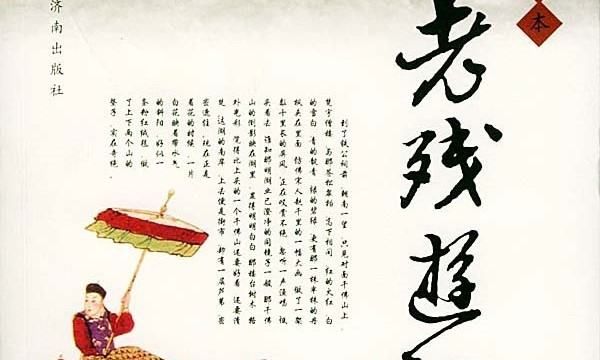 本
老残遊
到了铁公祠前 朝南一望 只见对面千佛山上
梵宇僧楼 与那苍松翠柏 高下相间 红的火红 白
的雪白 青的靛青 绿的碧绿 更有那一株半株的丹
枫夹在里面 仿佛宋人赵千里的一幅大画 做了一架
数十里长的屏风 正在叹赏不绝 忽听一声渔唱 低
头看去 谁知那明湖业已澄净的同镜子一般 那千佛
山的倒影映在湖里 显得明明白白 那楼台树木 格
外光彩 觉得比上头的一个千佛山还要好看 还要清
楚 这湖的南岸 上去便是街市 却有一层芦苇 密
密遮住 现在正是
着花的时候 一片
白花映着带水气
的斜阳 好似一
条粉红绒毯 做
了上下两个山的
垫子 实在奇绝
济南出版社